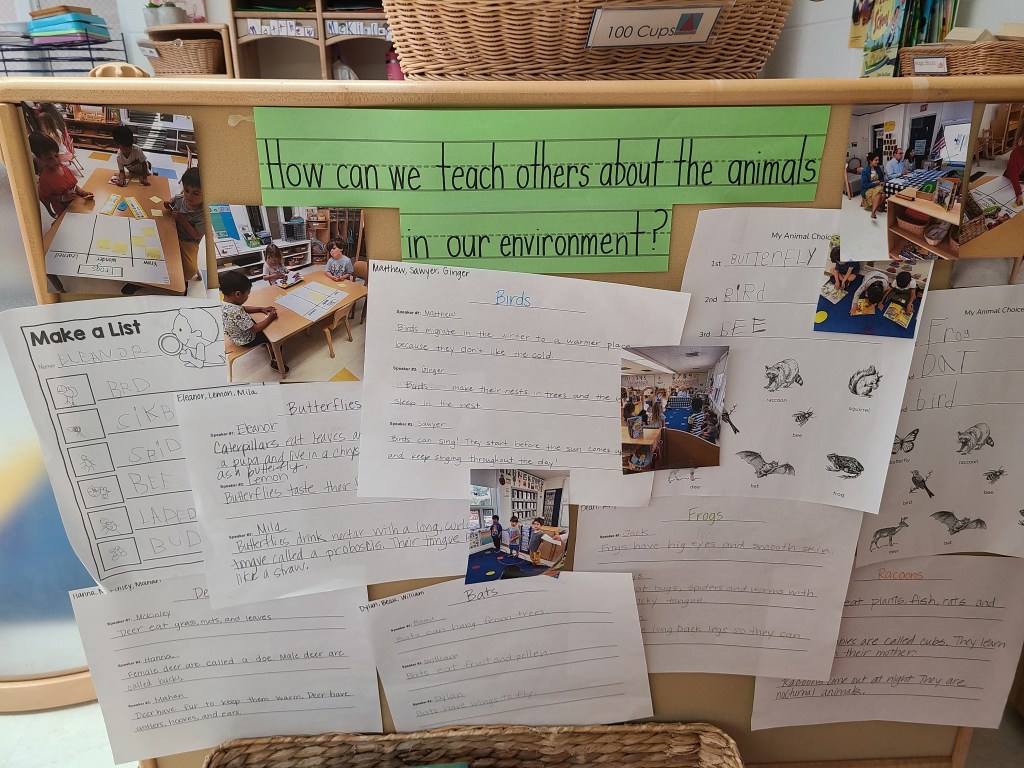 100 Cups
Matthew
McKinley
How can we teach others about the animals
in our environment?
Frogs
Make a List
Name: ELEANOR
BRD
BEE
LADED
BUD
Eleanor, Lemon, Mila
Butterflies
Speaker #1: Eleanor
Caterpillars eat leaves
a pupa and live in a
a butterfly.
Lemon
Butterflies taste their
Mila
Butterflies drink nectar with a long, curl
tongue called a probostis. Their tongue
like a straw.
Matthew, Sawyer, Ginger
Birds
Speaker #1: Matthew
Birds migrate in the winter to a warmer place
because they don't like the cold.
Speaker #2: Ginger
Birds make their nests in trees and the
sleep in the nest.
Speaker #3: Sawyer
Birds can sing! They start before the sun comes
and keep singing throughout the day!
My Animal Choice
1st BUTTERFLY
2nd BIRd
3rd bEE
raccoon
squirrel
bee
deer
bat
frog
My Animal Choice
Frog
BAT
bird
butterfly
raccoon
bird
bee
deer
bat
Speaker #1: McKinley
Deer eat grass, nuts, and leaves
Speaker #2: Hanna
Female deer are called a doe. Male deer are
called bucks.
Speaker #3: Mahan
Deer have fur to keep them warm. Deer have
antlers, hooves, and ears.
Dylan, Beau, William
Bats
Speaker #1: Beau
Bats can hang from trees.
Speaker #2: William
Bats eat fruit and pollen.
Speaker #3: Dylan
Bats have wings to fly.
Frogs
Frogs have big eyes and smooth skin.
eat bugs, spiders and worms with
tongue.
long back legs so they can
Racoons
eat plants, fish, rats and
are called cubs. They learn
their mother.
Racoons come out at night They are
nocturnal animals.